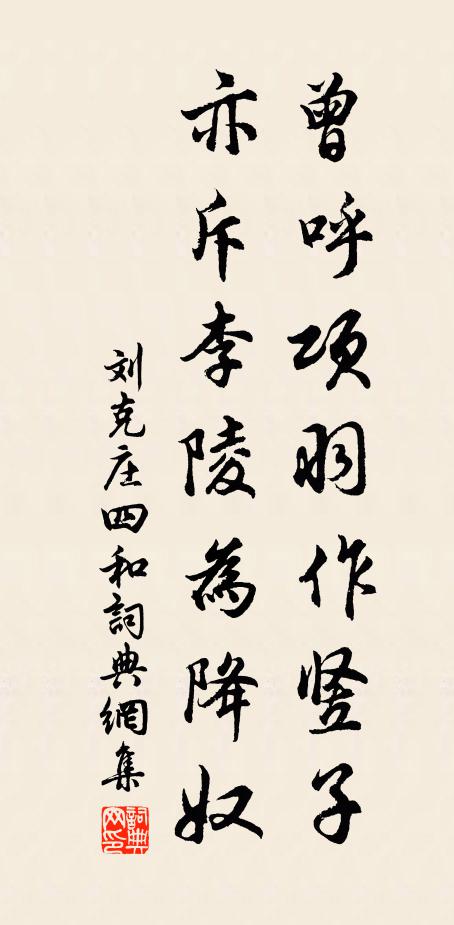 曾呼项羽作竖子
亦斥李陵為降奴
刘克庄四和詞典網集
詞典网印